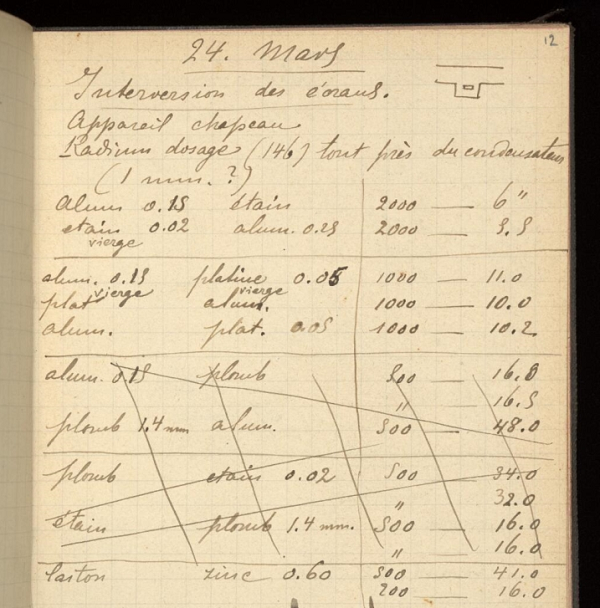 12
24. Mars
Interversion des écrans.
Appareil chapeau
Radium dosage (146) tout près du condensateur
(1 mm. ?)
alum 0.15 étain 2000 — 6"
etain 0.02 alum. 0.25 2000 — 5.5
vierge
alum. 0.15 platine 0.05 1000 — 11.0
vierge vierge
plat alum. 1000 — 10.0
alum. plat. 0.05 1000 — 10.2
alum. 0.15 plomb 500 — 16.8
" — 16.5
plomb 1.4 mm alum. 500 — 48.0
plomb etain 0.02 500 — 34.0
" 32.0
étain plomb 1.4 mm. 500 — 16.0
" — 16.0
zinc 0.60 500 — 41.0
200 — 16.0